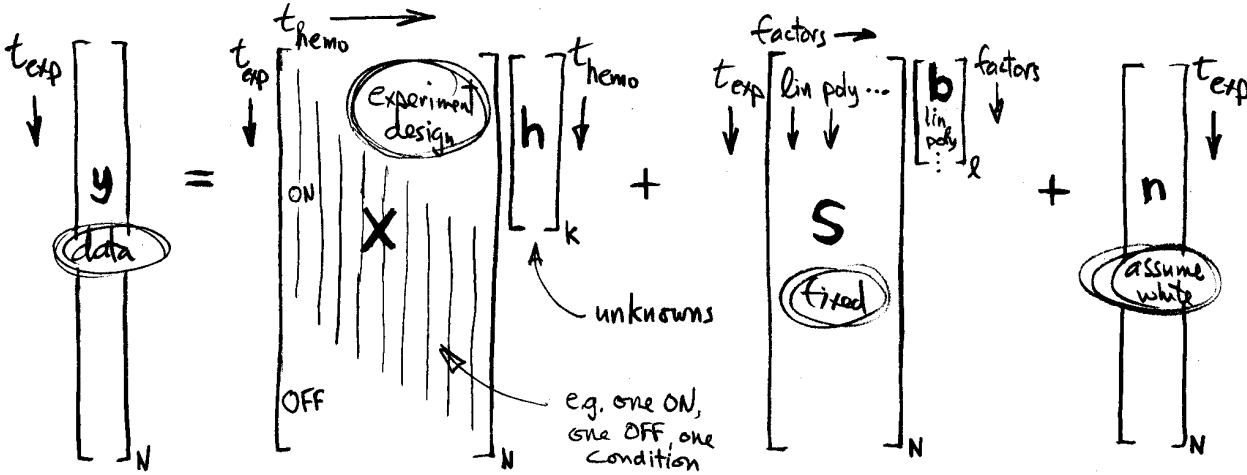 t_exp ↓
y
data
N
=
t_hemo →
t_exp ↓
experiment
design
ON
X
OFF
N
h
k
t_hemo ↓
unknowns
e.g. one ON,
one OFF, one
Condition
+
factors →
t_exp ↓
lin poly ...
↓ ↓
S
fixed
N
b
lin
poly
⋮
l
factors
↓
+
n
assume
white
N
t_exp ↓